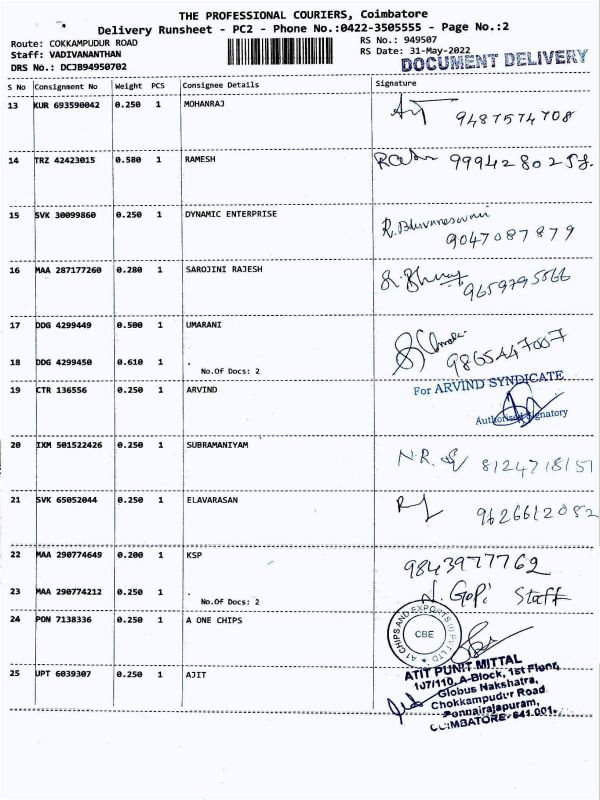 THE PROFESSIONAL COURIERS, Coimbatore
Delivery Runsheet - PC2 - Phone No.:0422-3505555 - Page No.:2
Route: COKKAMPUDUR ROAD
Staff: VADIVANANTHAN
DRS No.: DCJB94950702
RS No.: 949507
RS Date: 31-May-2022
DOCUMENT DELIVERY
S No Consignment No Weight PCS Consignee Details Signature
13 KUR 693590042 0.250 1 MOHANRAJ
9487574708
14 TRZ 42423015 0.580 1 RAMESH
9994280258.
15 SVK 30099860 0.250 1 DYNAMIC ENTERPRISE
R. Bhuvaneswari
9047087879
16 MAA 287177260 0.280 1 SAROJINI RAJESH
9659795566
17 DDG 4299449 0.500 1 UMARANI
9865447007
18 DDG 4299450 0.610 1 .
No.Of Docs: 2
19 CTR 136556 0.250 1 ARVIND
For ARVIND SYNDICATE
Authorised Signatory
20 IXM 501522426 0.250 1 SUBRAMANIYAM
8124718151
21 SVK 65052044 0.250 1 ELAVARASAN
9626612082
22 MAA 290774649 0.200 1 KSP
9843977762
23 MAA 290774212 0.250 1 .
No.Of Docs: 2
N. Gopi Staff
24 PON 7138336 0.250 1 A ONE CHIPS
A1 CHIPS AND EXPORTS (I) P LTD
CBE
25 UPT 6039307 0.250 1 AJIT
ATIT PUNIT MITTAL
107/110, A-Block, 1st Floor,
Globus Nakshatra,
Chokkampudur Road
Ponnairajapuram,
COIMBATORE-641 001.